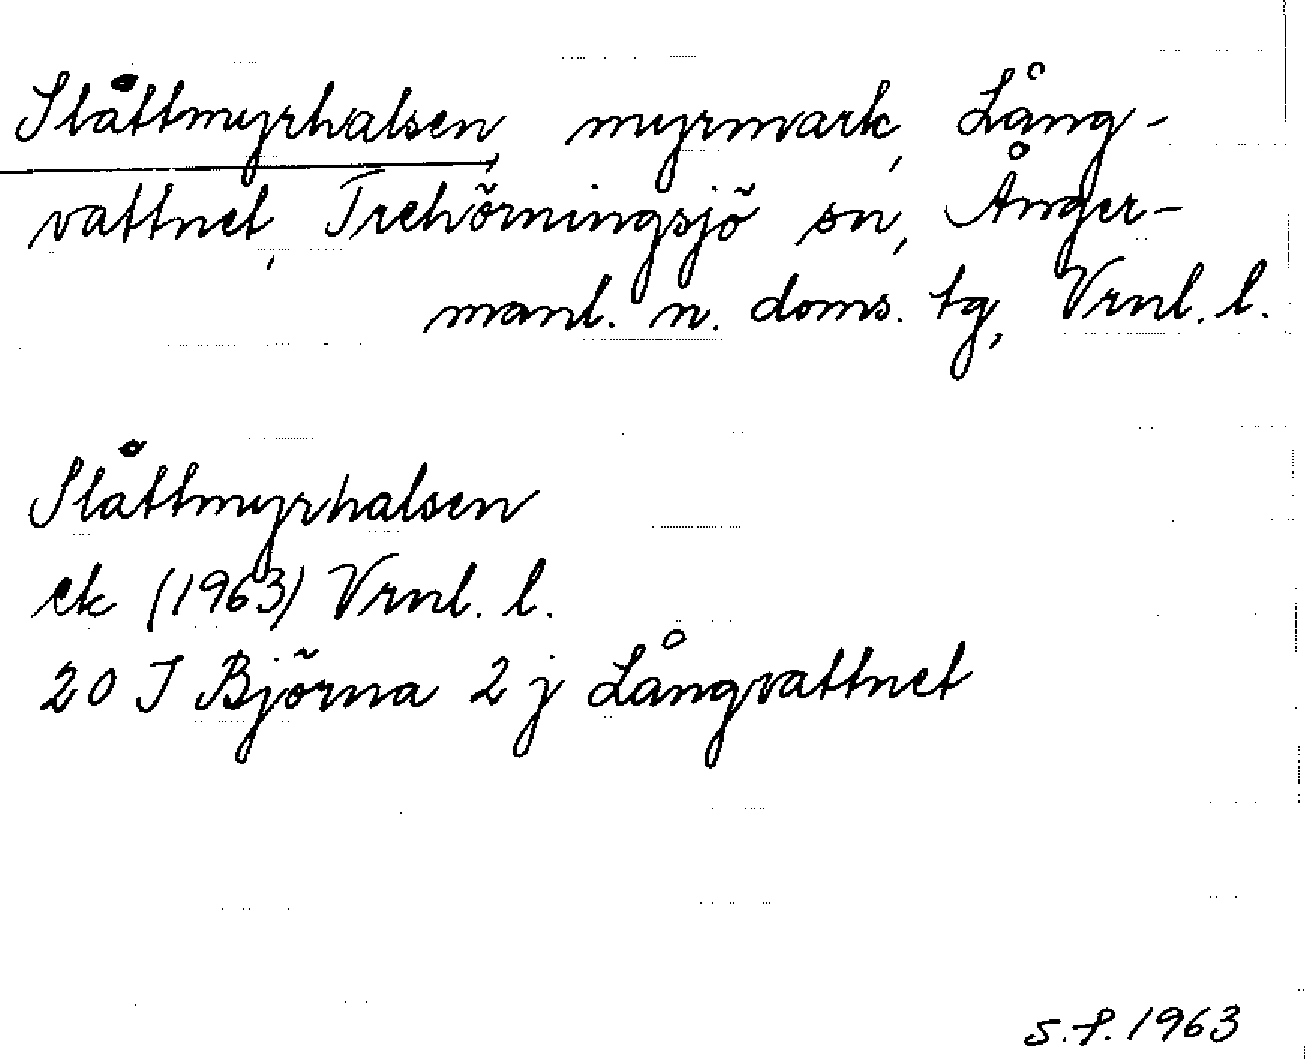 Slåttmyrhalsen, myrmark, Lång-
vattnet, Trehörningsjö sn, Ånger-
manl. n. doms. tg, Vrnl. l.
Slåttmyrhalsen
ek (1963) Vrnl. l.
20 I Björna 2 j Långvattnet
S.F. 1963